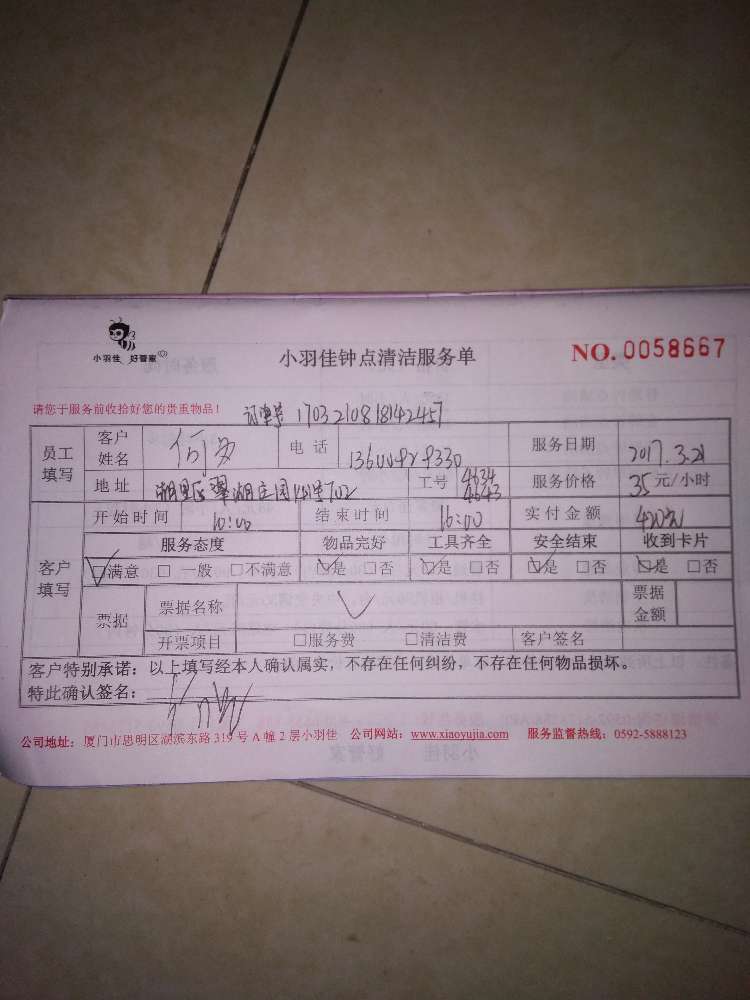 小羽佳 好管家
小羽佳钟点清洁服务单
NO. 0058667
请您于服务前收拾好您的贵重物品！
订单号 1703210818142457
员工填写 客户姓名 何 电话 服务日期 2017.3.21
地址 湖里区 湖庄园 702 工号 4634 4643 服务价格 35 元/小时
客户填写 开始时间 10:00 结束时间 16:00 实付金额 420元
服务态度 物品完好 工具齐全 安全结束 收到卡片
☑满意 □ 一般 □不满意 ☑是 □否 ☑是 □否 ☑是 □否 ☑是 □否
票据 票据名称 票据金额
开票项目 □服务费 □清洁费 客户签名
客户特别承诺：以上填写经本人确认属实，不存在任何纠纷，不存在任何物品损坏。
特此确认签名：
公司地址：厦门市思明区湖滨东路 319 号 A 幢 2 层小羽佳 公司网站：www.xiaoyujia.com 服务监督热线：0592-5888123